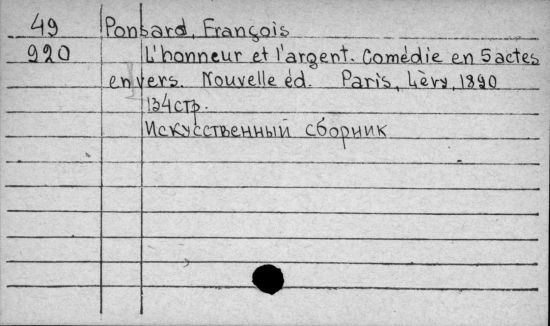 49 Ponsard, François
920 L'honneur et l'argent. Comédie en 5 actes
en vers. Nouvelle éd. Paris, Lévy, 1890
134 стр.
Искусственный сборник